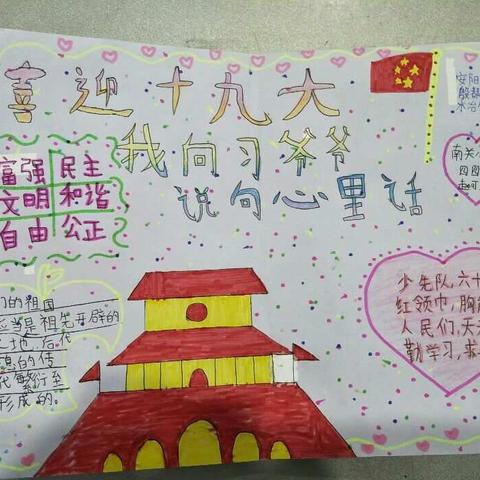 喜迎十九大
我向习爷爷
说句心里话
安阳
殷都
水冶
南关
四
赵可
富强 民主
文明 和谐
自由 公正
们的祖国
应当是祖先开辟的
土地,后代
的传
代繁衍至
形成的.
少先队,六十
红领巾,胸
人民们,大
勤学习,求